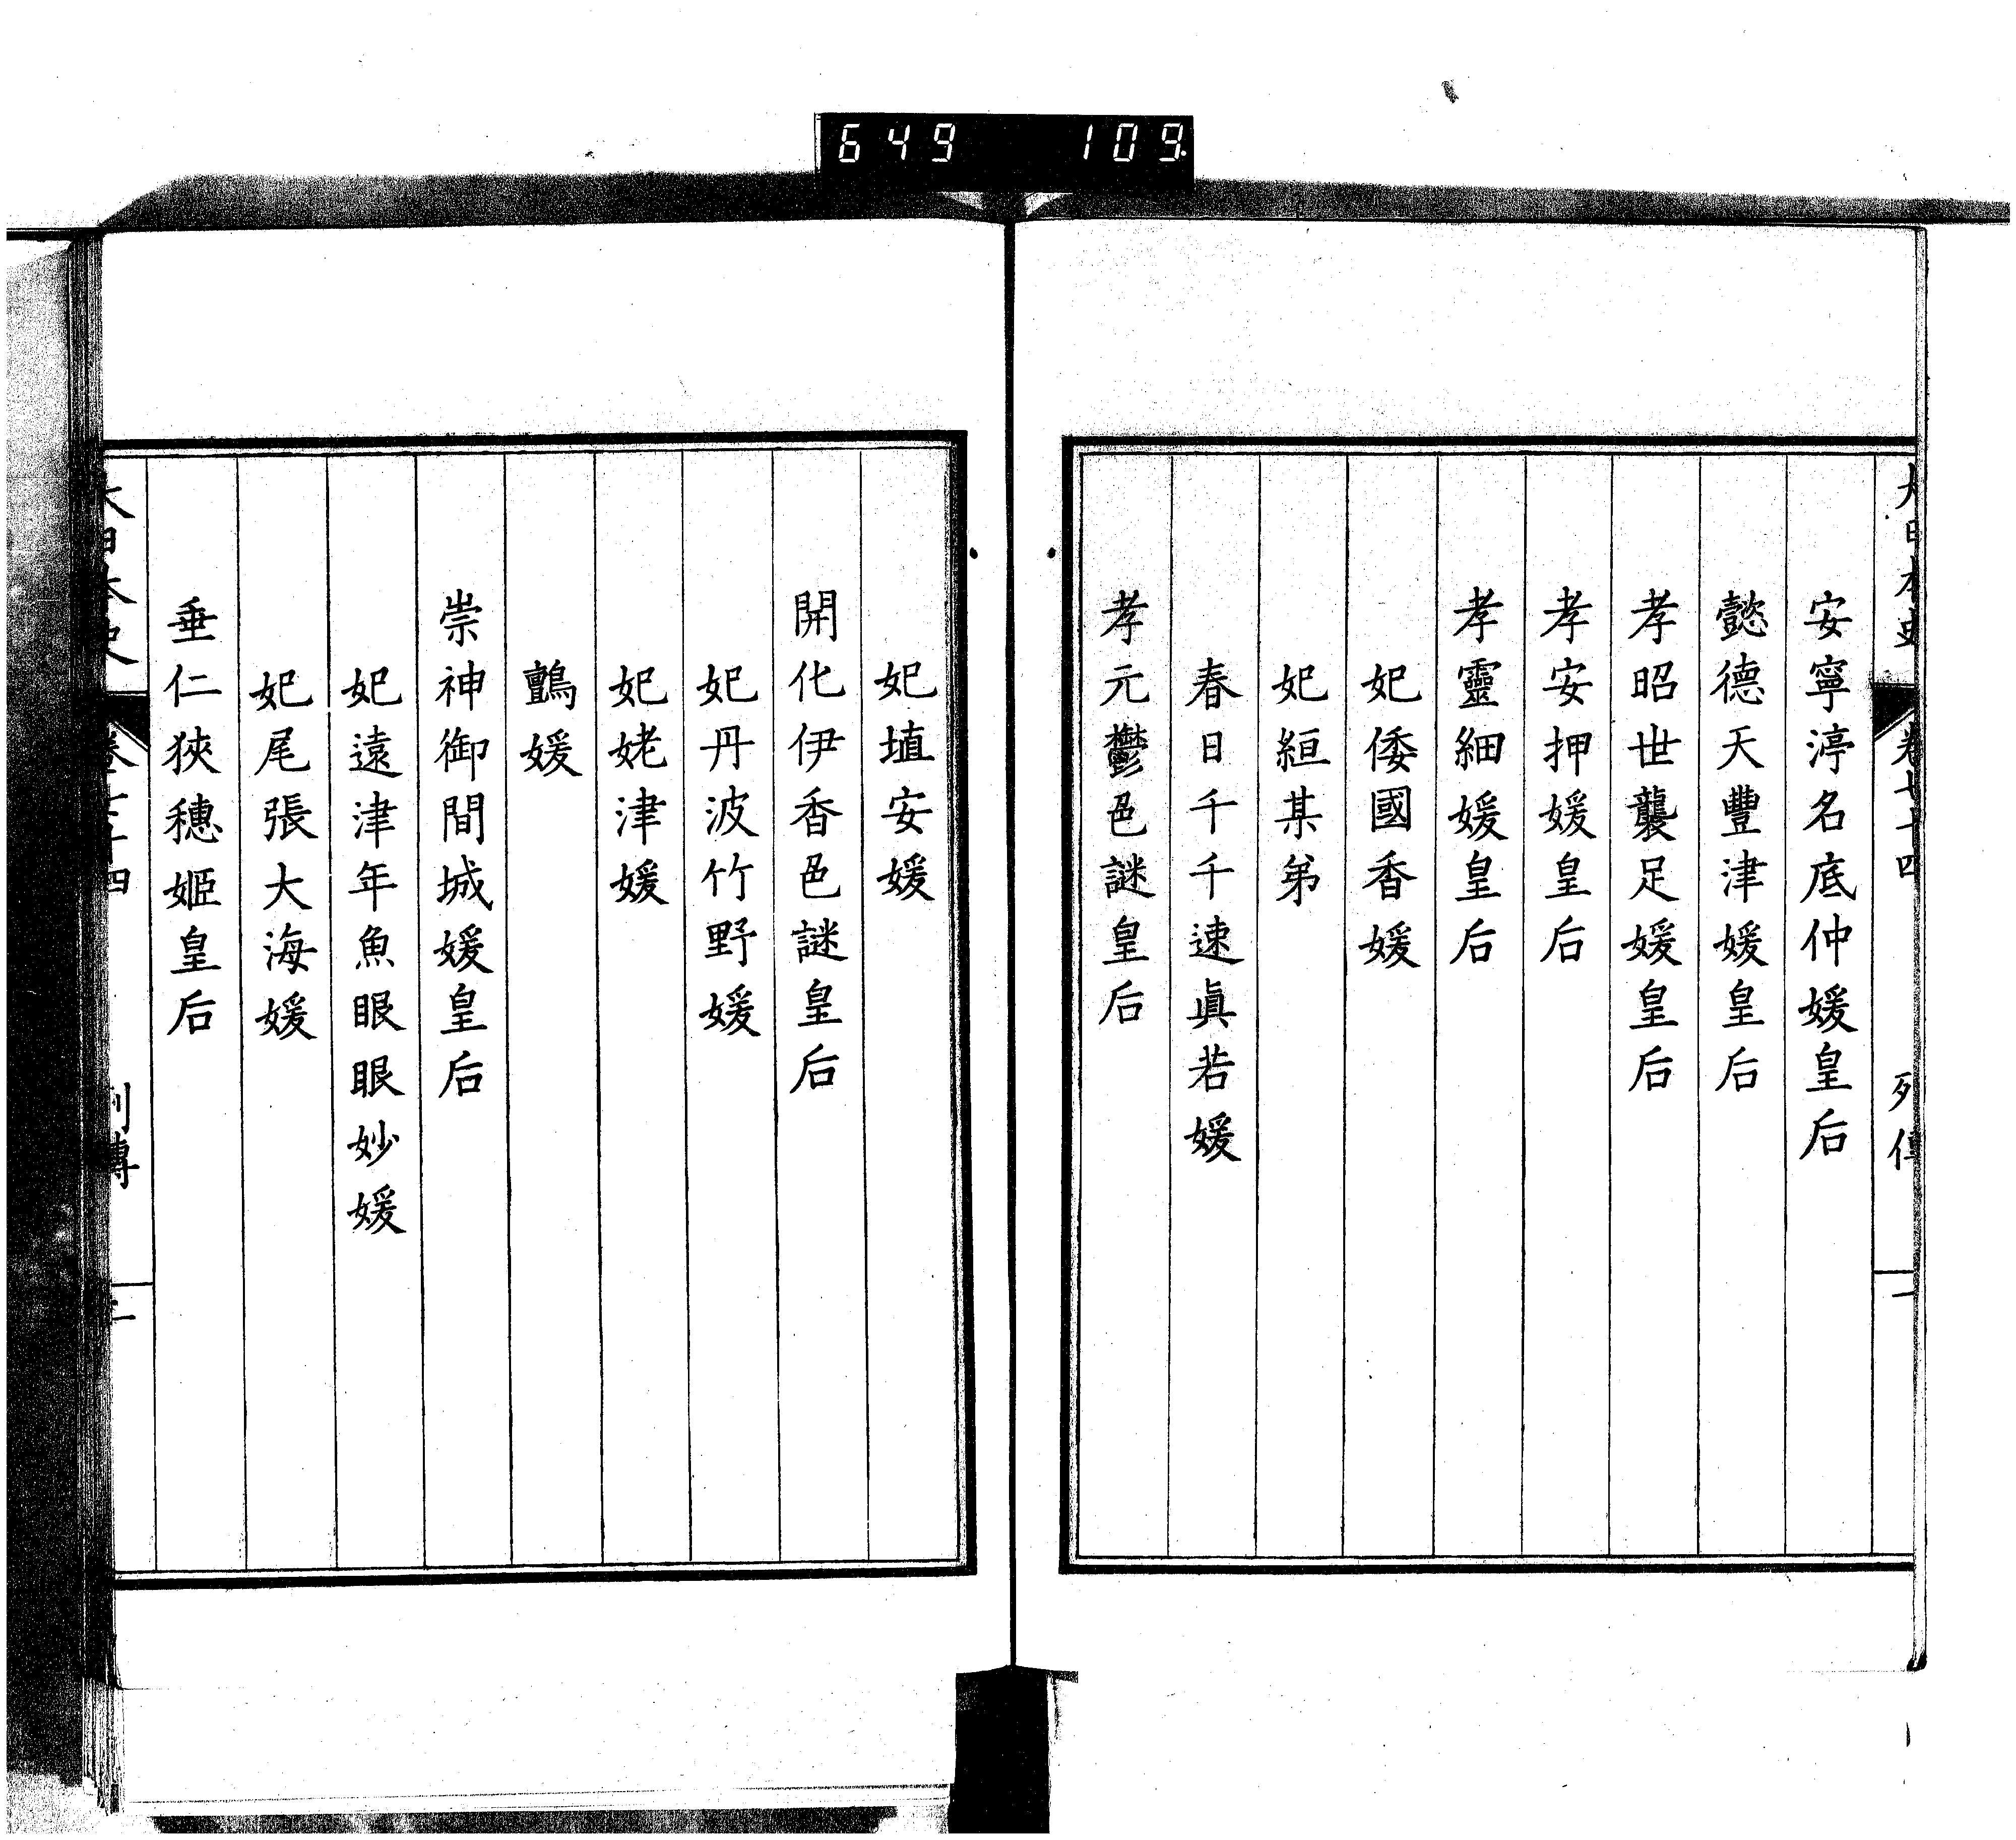 649 109
大日本史 卷七十四 列傳 一
安寧渟名底仲媛皇后
懿德天豐津媛皇后
孝昭世襲足媛皇后
孝安押媛皇后
孝靈細媛皇后
妃倭國香媛
妃絙某弟
春日千千速眞若媛
孝元鬱色謎皇后
妃埴安媛
開化伊香色謎皇后
妃丹波竹野媛
妃姥津媛
鸇媛
崇神御間城媛皇后
妃遠津年魚眼眼妙媛
妃尾張大海媛
垂仁狹穗姬皇后
大日本史 卷七十四 列傳